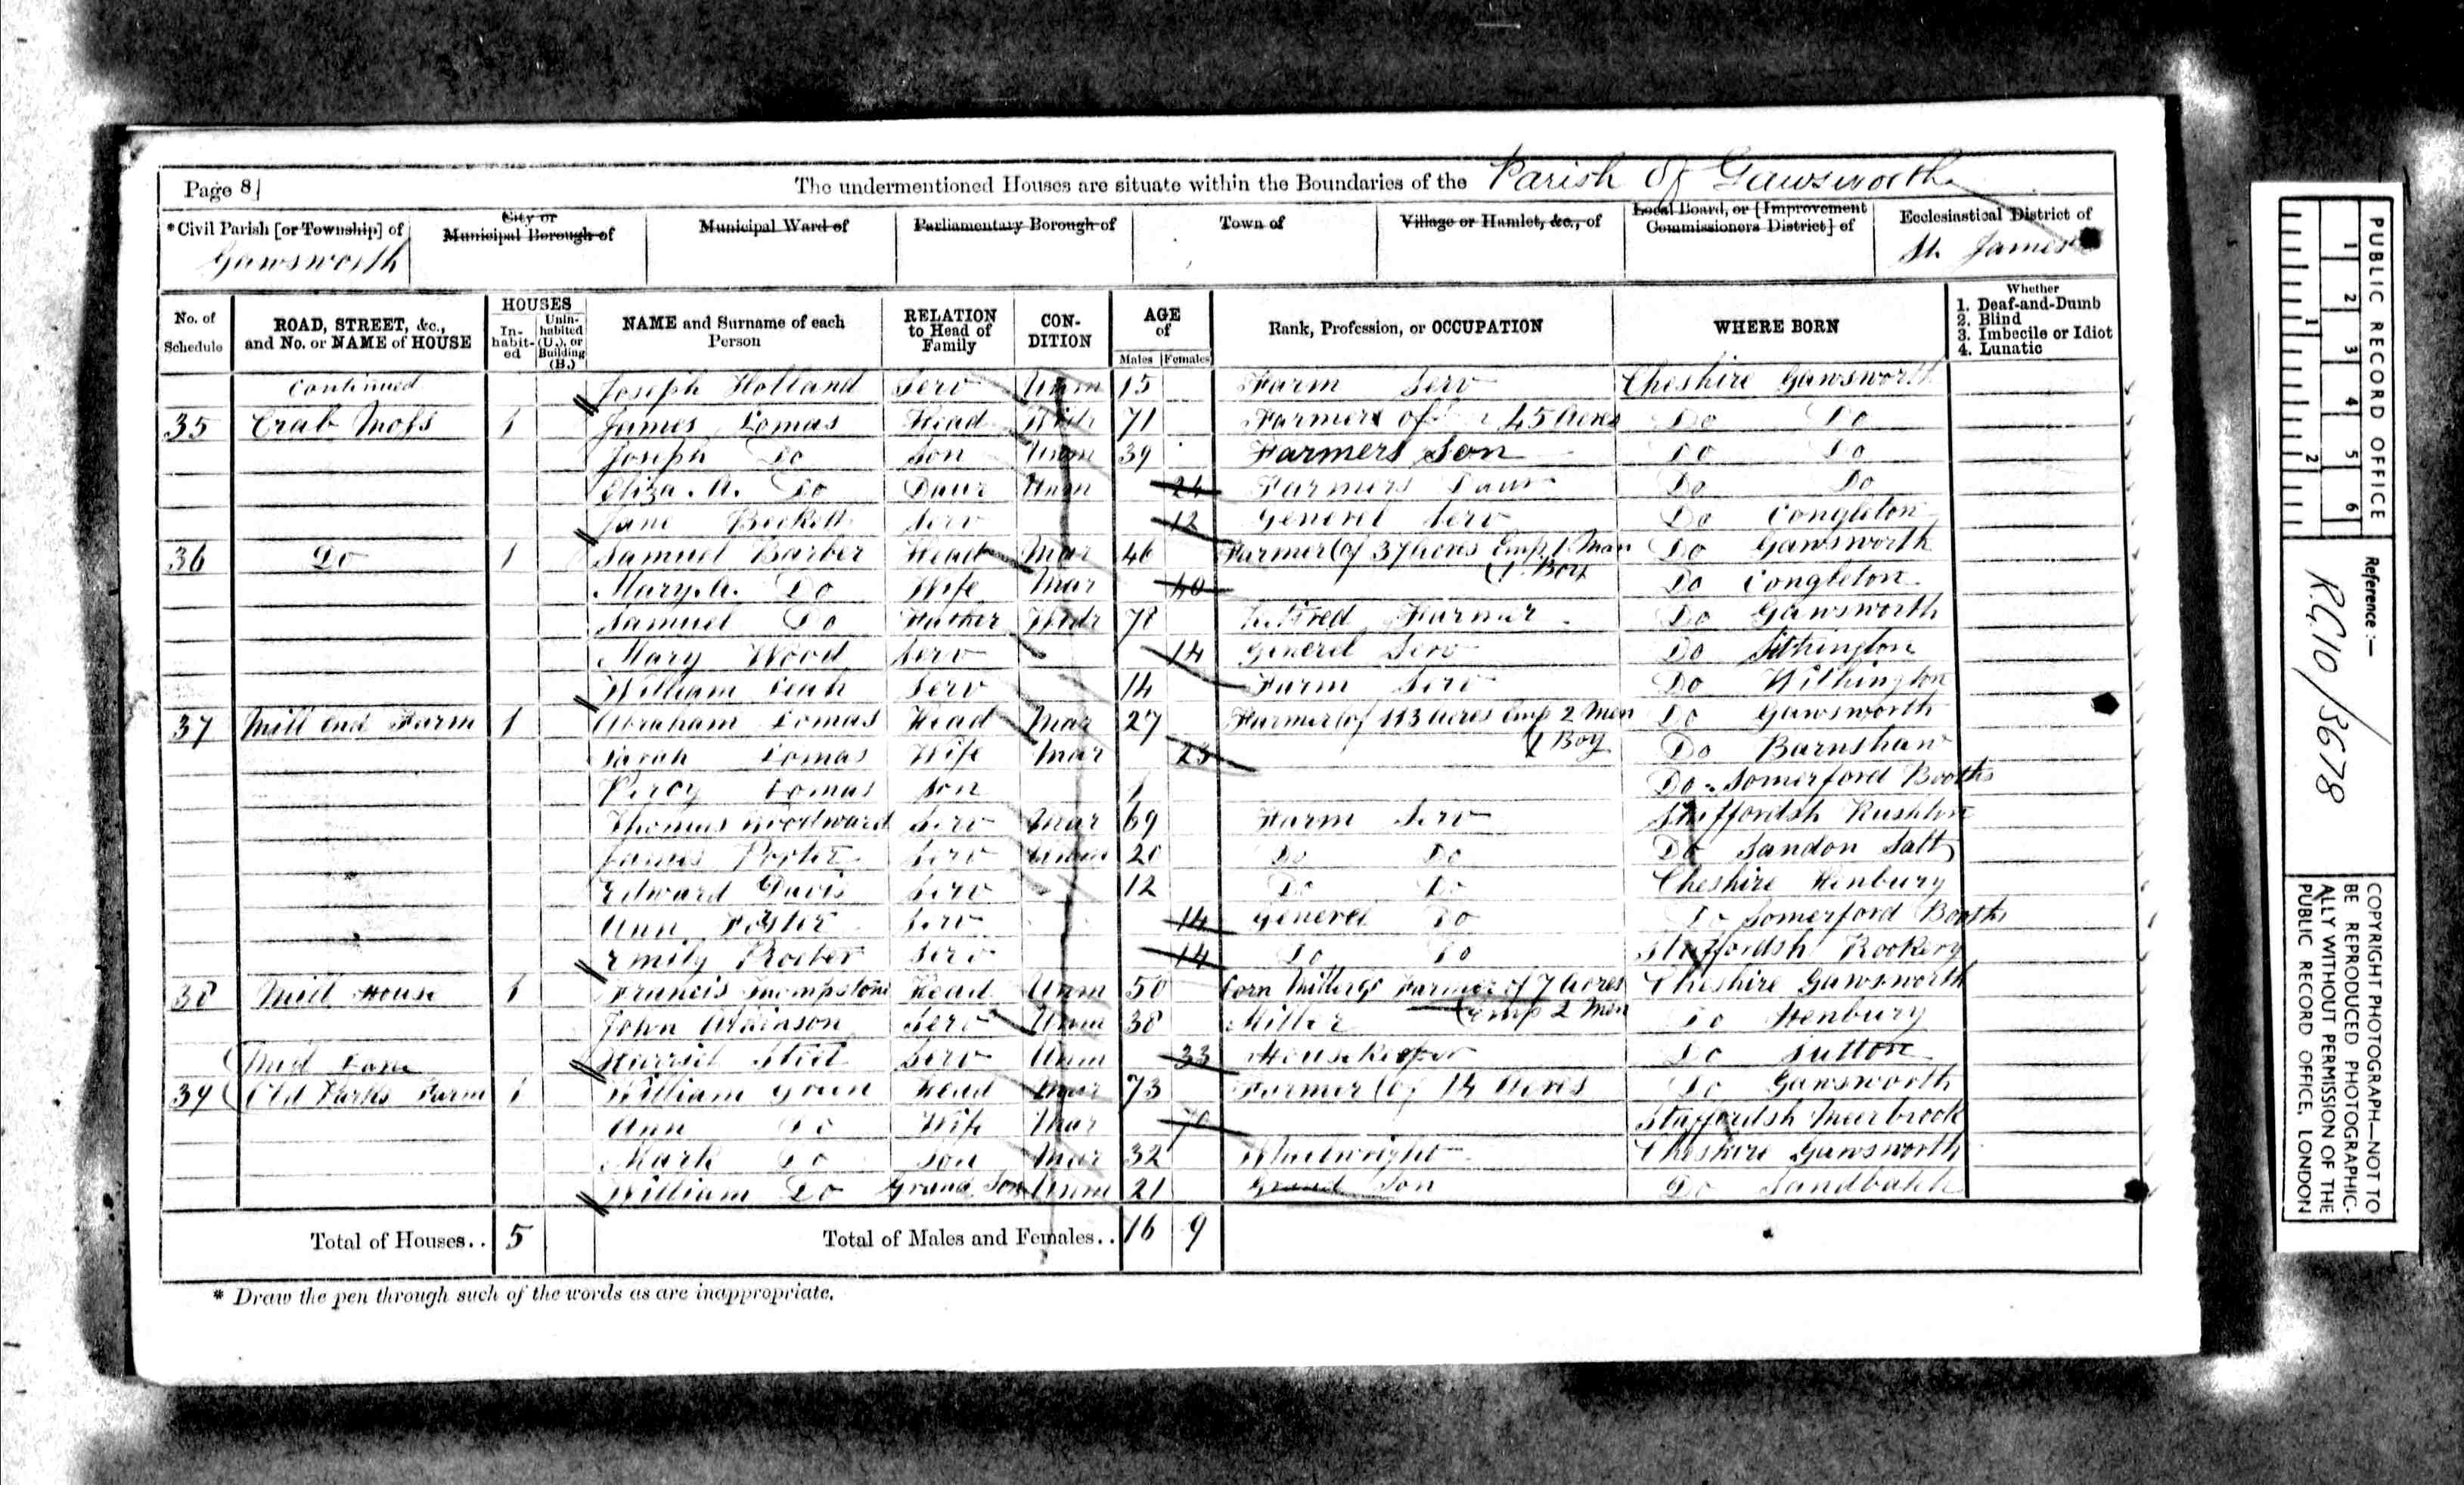 Page 8]
The undermentioned Houses are situate within the Boundaries of the Parish of Gawsworth
*Civil Parish [or Township] of
Gawsworth
City or
Municipal Borough of
Municipal Ward of
Parliamentary Borough of
Town of
Village or Hamlet, &c., of
Local Board, or [Improvement
Commissioners District] of
Ecclesiastical District of
St. James
No. of
Schedule
ROAD, STREET, &c.,
and No. or NAME of HOUSE
HOUSES
In-
habit-
ed
Unin-
habited
(U.), or
Building
(B.)
NAME and Surname of each
Person
RELATION
to Head of
Family
CON-
DITION
AGE
of
Males Females
Rank, Profession, or OCCUPATION
WHERE BORN
Whether
1. Deaf-and-Dumb
2. Blind
3. Imbecile or Idiot
4. Lunatic
continued Joseph Holland Serv Unm 15 Farm Serv Cheshire Gawsworth
35 Crab Moss 1 James Lomas Head Widr 71 Farmer of 45 Acres Do Do
Joseph Do Son Unm 39 Farmers Son Do Do
Eliza. A. Do Daur Unm 24 Farmers Daur Do Do
Jane Beckett Serv 12 General Serv Do Congleton
36 Do 1 Samuel Barber Head Mar 46 Farmer (of 37 Acres Emp 1 Man Do Gawsworth
Mary. A. Do Wife Mar 40 (1 Boy Do Congleton
Samuel Do Father Widr 78 Retired Farmer Do Gawsworth
Mary Wood Serv 14 General Serv Do Sithington
William Leah Serv 14 Farm Serv Do Withington
37 Mill end Farm 1 Abraham Lomas Head Mar 27 Farmer (of 113 Acres Emp 2 Men Do Gawsworth
Sarah Lomas Wife Mar 23 (1 Boy Do Barnshaw
Percy Lomas Son 1 Do Somerford Booths
Thomas Woodward Serv Mar 69 Farm Serv Staffordsh Rushton
James Porter Serv Unm 20 Do Do Do Sandon Salt
Edward Davis Serv 12 Do Do Cheshire Henbury
Ann Foster Serv 14 General Do Do Somerford Booths
Emily Procter Serv 14 Do Do Staffordsh Rookery
38 Mill House 1 Francis Thompstone Head Unm 50 Corn Miller & Farmer of 7 Acres Cheshire Gawsworth
John Atkinson Serv Unm 38 Miller (emp 2 Men Do Henbury
Mill Lane Harriet Steel Serv Unm 33 Housekeeper Do Sutton
39 Old Parks Farm 1 William Green Head Mar 73 Farmer (of 14 Acres Do Gawsworth
Ann Do Wife Mar 70 Staffordsh Meerbrook
Mark Do Son Mar 32 Wheelwright Cheshire Gawsworth
William Do Grand Son Unm 21 Grand Son Do Sandbatch
Total of Houses.. 5 Total of Males and Females.. 16 9
* Draw the pen through such of the words as are inappropriate.
PUBLIC RECORD OFFICE
1 2 3 4 5 6
1 2
Reference :—
R.G.10/3678
COPYRIGHT PHOTOGRAPH—NOT TO
BE REPRODUCED PHOTOGRAPHIC-
ALLY WITHOUT PERMISSION OF THE
PUBLIC RECORD OFFICE, LONDON